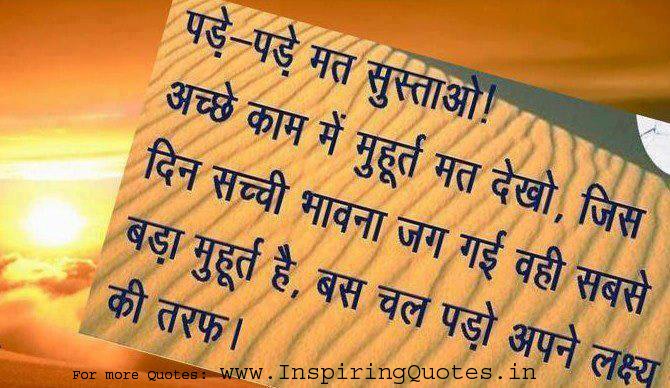 पड़े-पड़े मत सुस्ताओ!
अच्छे काम में मुहूर्त मत देखो, जिस
दिन सच्ची भावना जग गई वही सबसे
बड़ा मुहूर्त है, बस चल पड़ो अपने लक्ष्य
की तरफ।
For more Quotes: www.InspiringQuotes.in